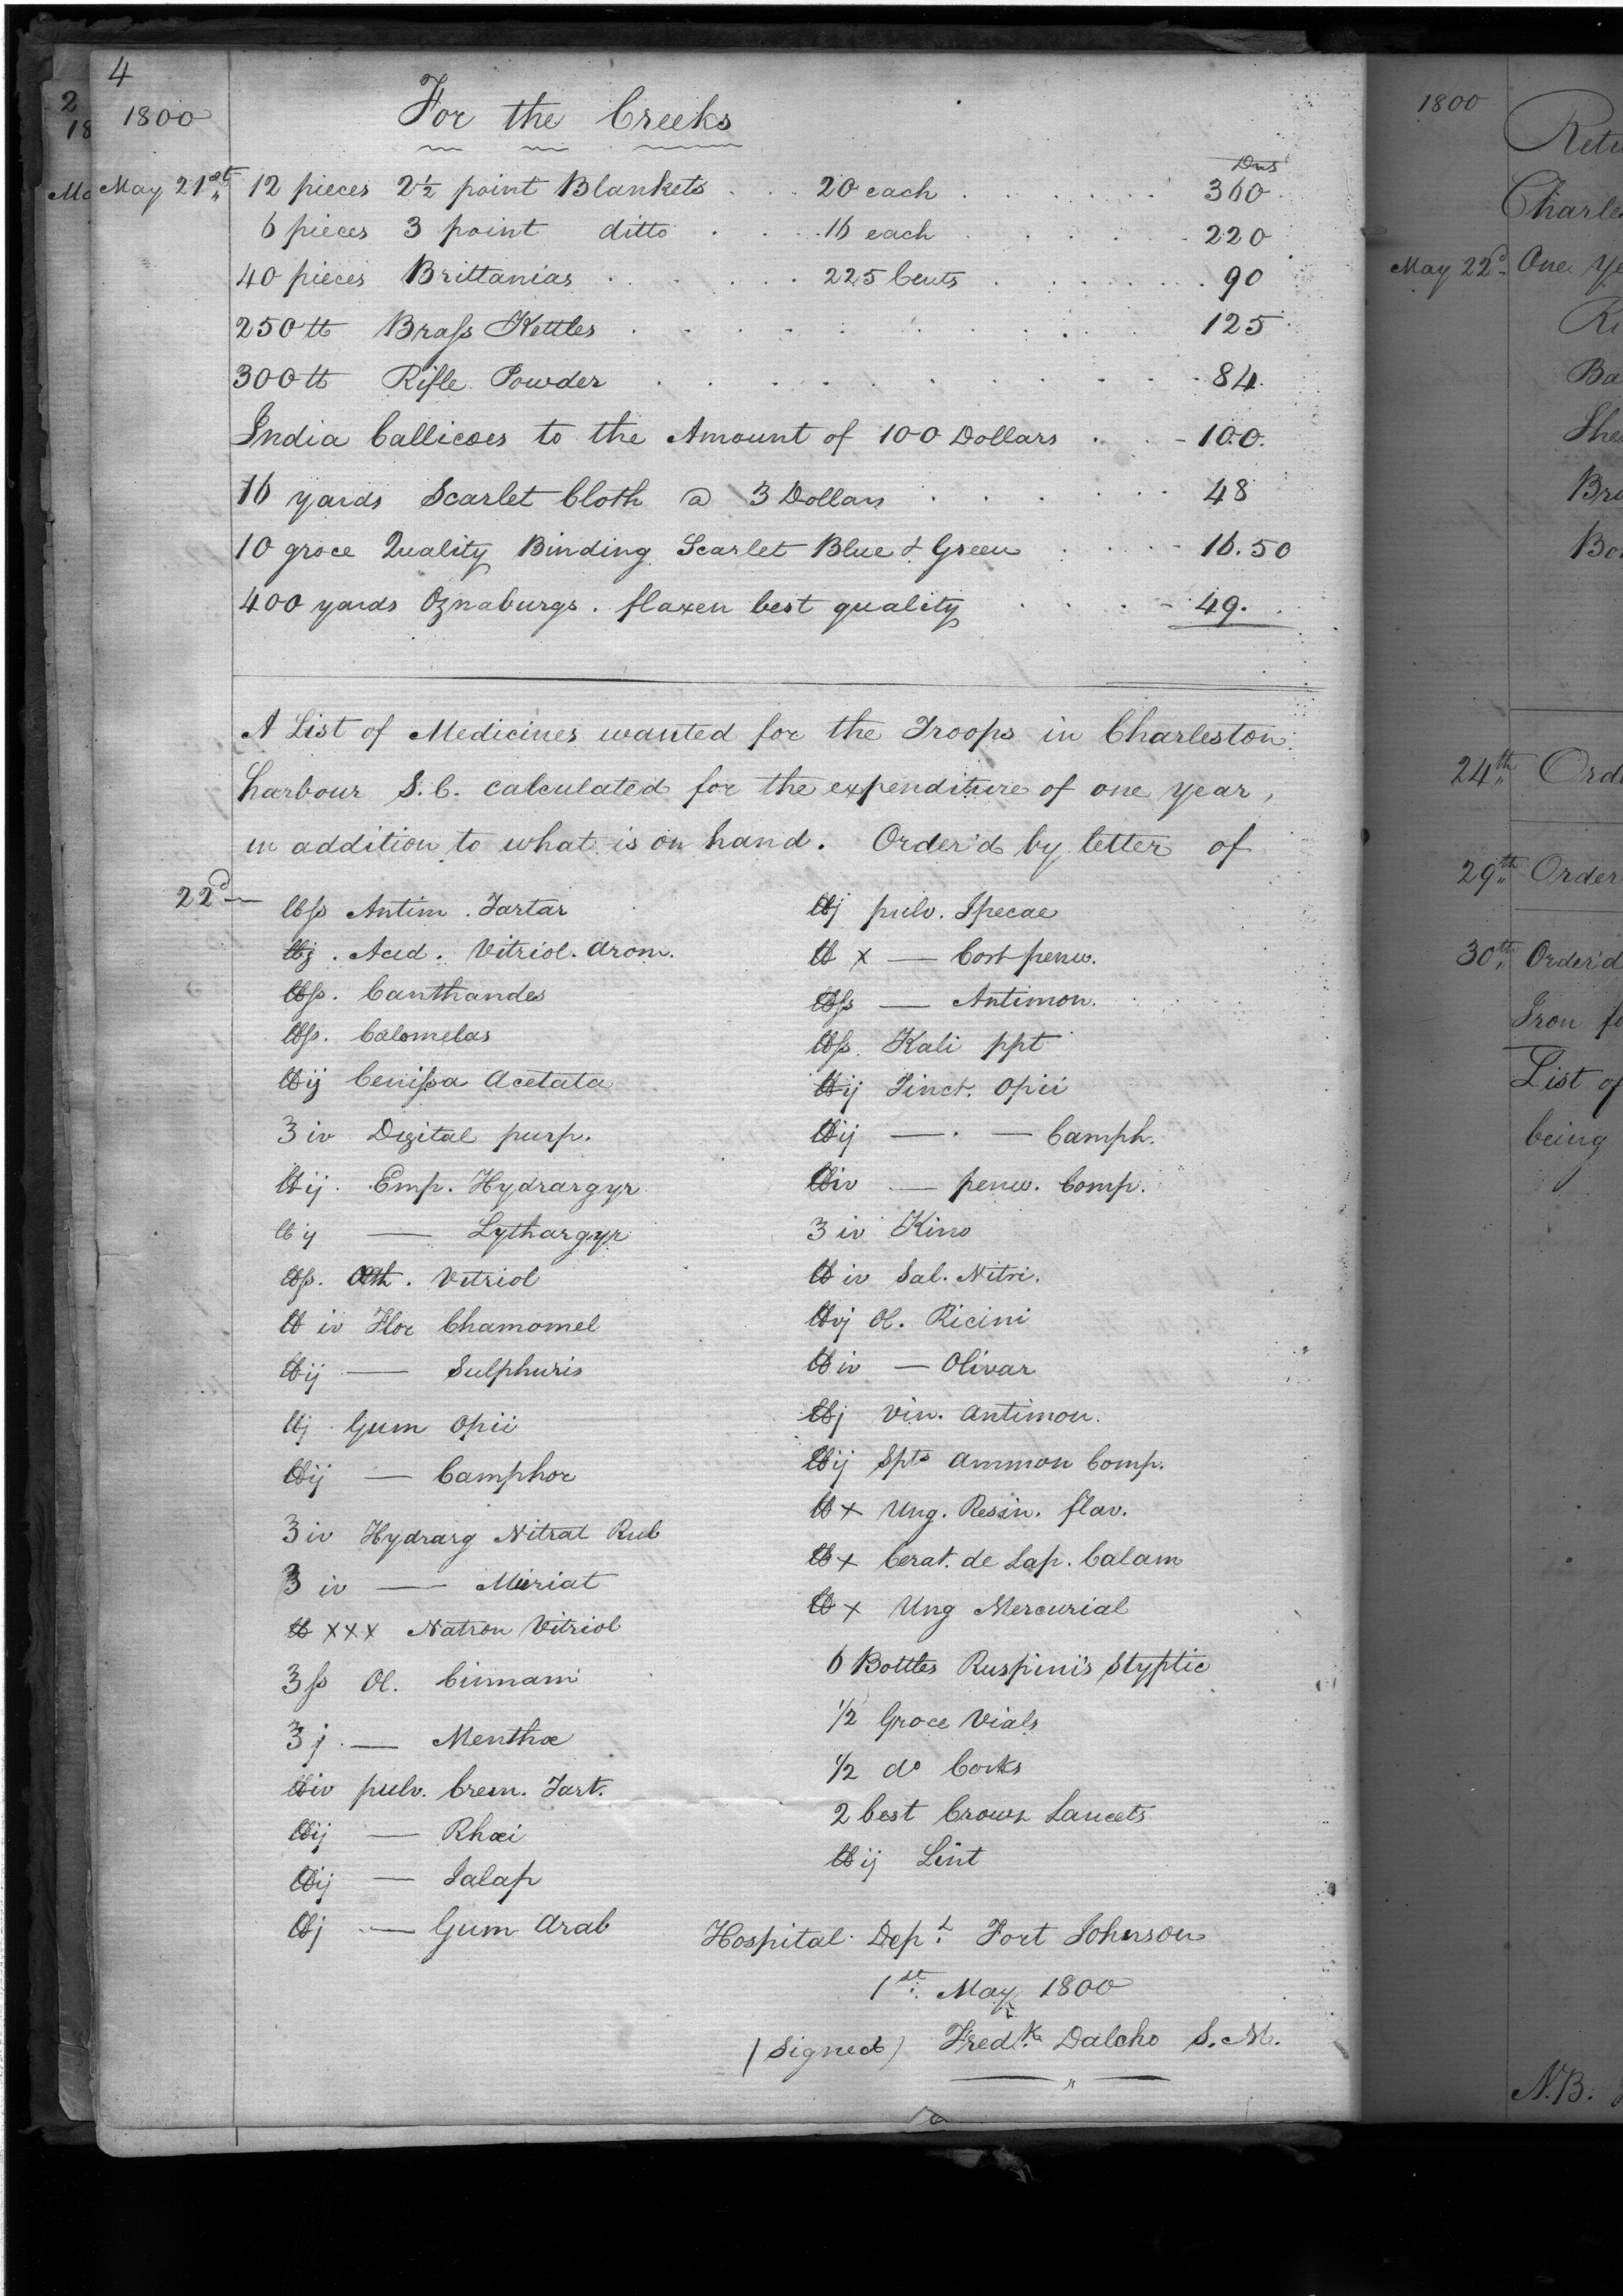 4
1800
For the Creeks
Dlls
May 21st 12 pieces 2½ point Blankets . . 20 each . . . . . . 360
6 pieces 3 point ditto . . . 16 each . . . . . 220
40 pieces Brittanias . . . . . 225 Cents . . . . . . 90
250 lb Brass Kettles . . . . . . . . . . 125
300 lb Rifle Powder . . . . . . . . . . . 84.
India Callicoes to the Amount of 100 Dollars . . - 100.
16 yards Scarlet Cloth @ 3 Dollars . . . . . . 48
10 groce Quality Binding Scarlet Blue & Green . . . - 16.50
400 yards Oznaburgs. flaxen best quality . . . . - 49.
A List of Medicines wanted for the Troops in Charleston
harbour S.C. calculated for the expenditure of one year,
in addition to what is on hand. Order'd by letter of
22d —
lbss Antim. Tartar
lbj. Acid. Vitriol. Arom.
lbss. Canthandes
lbss. Calomelas
lbij Cerussa Acetata
℥iv Digital purp.
lbij. Emp. Hydrargyr
lbij — Lythargyr
lbss. Æth. Vitriol
lb iv Flor Chamomel
lbij — Sulphuris
lbj Gum Opii
lbij — Camphor
℥iv Hydrarg Nitrat Rub
℥iv — Muriat
lb xxx Natron Vitriol
℥ss Ol. Cinnam
℥j. — Menthæ
lbiv pulv. Crem. Tart.
lbij — Rhæi
lbij — Jalap
lbj — Gum Arab
lbj pulv. Ipecac
lb x — Cort peruv.
lbss — Antimon.
lbss. Kali ppt
lbij Tinct. Opii
lbij — . — Camph.
lbiv — peruv. Comp.
℥iv Kino
lb iv Sal. Nitri.
lbvj Ol. Ricini
lb iv — Olivar
lbj Vin. Antimon.
lbij Spts Ammon Comp.
lb x Ung. Resin. flav.
lb x Cerat. de Lap. Calam
lb x Ung Mercurial
6 Bottles Ruspini's Styptic
1/2 Groce Vials
1/2 do Corks
2 best Crown Lancets
lb ij Lint
Hospital Dept. Fort Johnson
1st. May 1800
(Signed) Fredk. Dalcho S.M.
2
18
1800
May 22d. One
24th
29th Order
30th Order'd
Iron
List of
being
N.B.